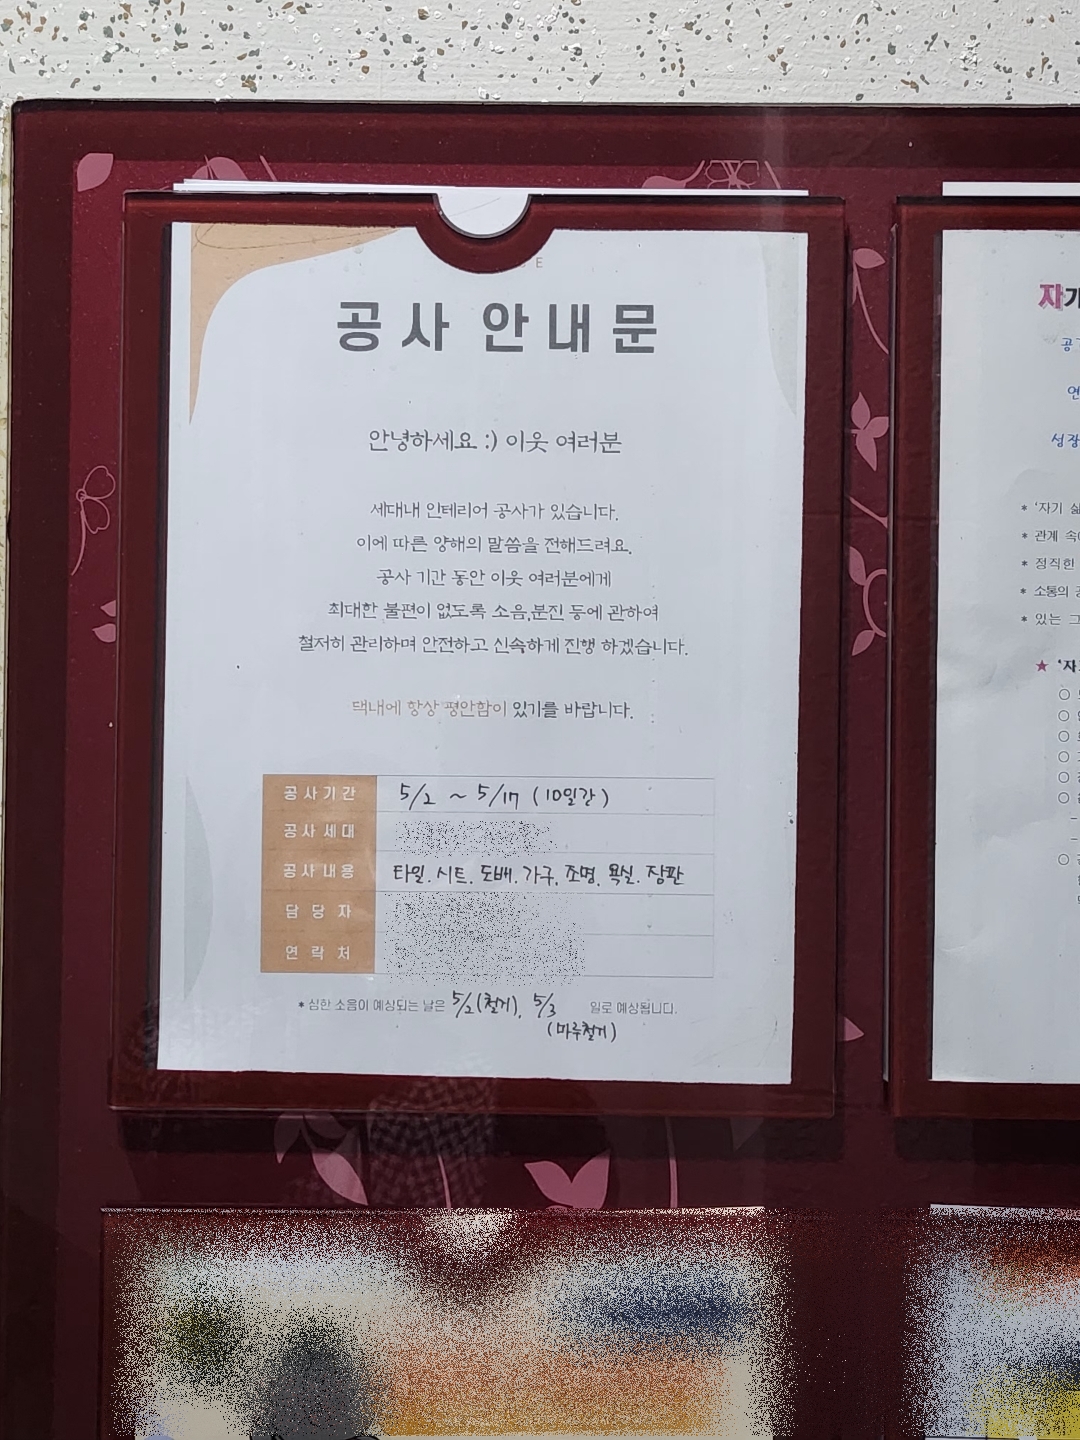 E
공사 안내문
안녕하세요 :) 이웃 여러분
세대내 인테리어 공사가 있습니다.
이에 따른 양해의 말씀을 전해드려요.
공사 기간 동안 이웃 여러분에게
최대한 불편이 없도록 소음,분진 등에 관하여
철저히 관리하며 안전하고 신속하게 진행 하겠습니다.
댁내에 항상 평안함이 있기를 바랍니다.
공사기간 5/2 ~ 5/17 (10일간)
공사세대
공사내용 타일. 시트. 도배. 가구. 조명. 욕실. 장판
담당자
연락처
* 심한 소음이 예상되는 날은 5/2(철거), 5/3 일로 예상됩니다.
(마루철거)
* '자기
* 관계
* 정직한
* 소통의
* 있는 그
★